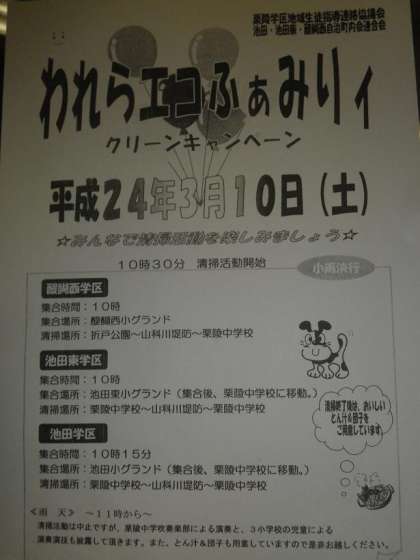 栗陵学区地域生徒指導連絡協議会
池田・池田東・醍醐西自治町内会連合会
われらエコふぁみりィ
クリーンキャンペーン
平成24年3月10日（土）
☆みんなで清掃活動を楽しみましょう☆
10時30分　清掃活動開始
小雨決行
醍醐西学区
集合時間：10時
集合場所：醍醐西小グランド
清掃場所：折戸公園～山科川堤防～栗陵中学校
池田東学区
集合時間：10時
集合場所：池田東小グランド（集合後、栗陵中学校に移動。）
清掃場所：栗陵中学校～山科川堤防～栗陵中学校
清掃終了後は、おいしい
とん汁＆団子を
ご用意しています。
池田学区
集合時間：10時15分
集合場所：池田小グランド（集合後、栗陵中学校に移動。）
清掃場所：栗陵中学校～山科川堤防～栗陵中学校
≪雨　天≫　～11時から～
清掃活動は中止ですが、栗陵中学校吹奏楽部による演奏と、3小学校の児童による
演奏演技も披露して頂きます。また、とん汁＆団子も用意していますので是非お越しください。